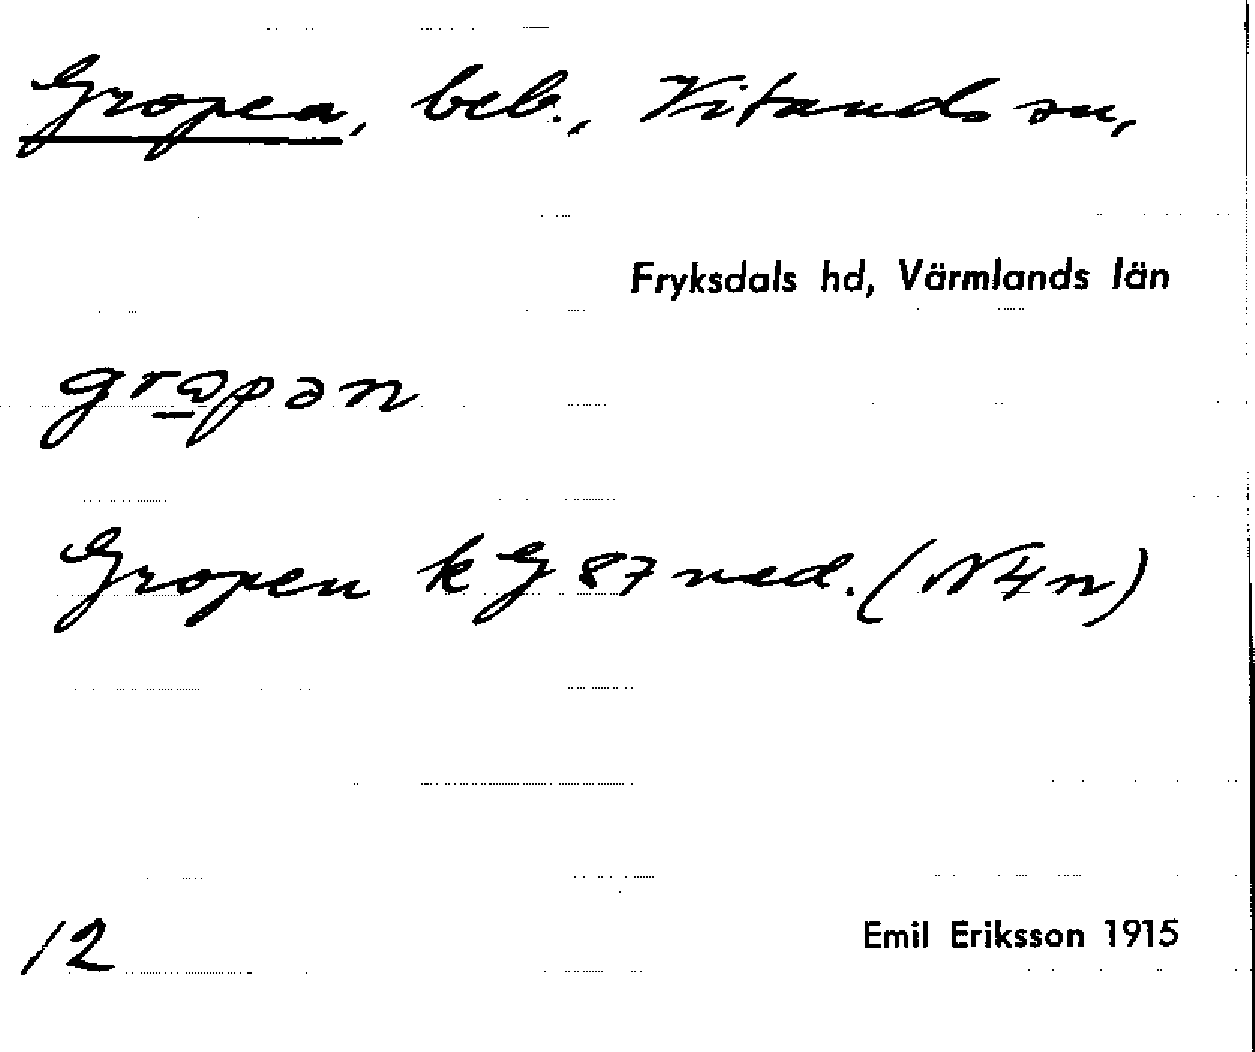 Gropen, beb., Vitsands sn,
Fryksdals hd, Värmlands län
Gropen k G 87 ned. (N4n)
12
Emil Eriksson 1915